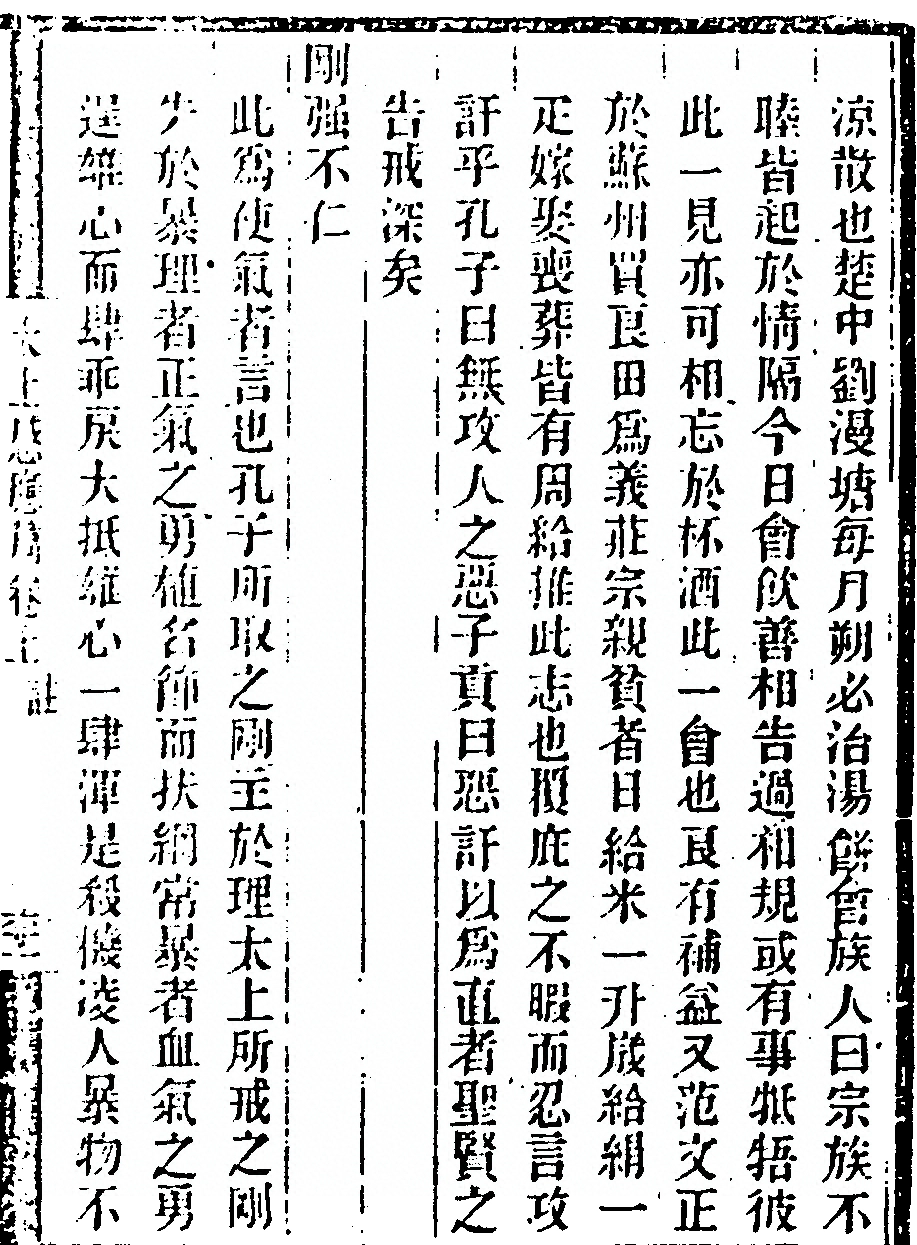 涼散也楚中劉漫塘每月朔必治湯餅會族人曰宗族不
睦皆起於情隔今日會飲善相告過相規或有事牴牾彼
此一見亦可相忘於杯酒此一會也良有補益又范文正
於蘇州買良田爲義莊宗親貧者日給米一升歲給絹一
疋嫁娶喪葬皆有周給推此志也覆庇之不暇而忍言攻
訐乎孔子曰無攻人之惡子貢曰惡訐以爲直者聖賢之
告戒深矣
剛强不仁
此爲使氣者言也孔子所取之剛主於理太上所戒之剛
失於暴理者正氣之勇植名節而扶綱常暴者血氣之勇
逞雄心而肆乖戾大抵雄心一肆渾是殺機凌人暴物不
太上感應篇卷上 註